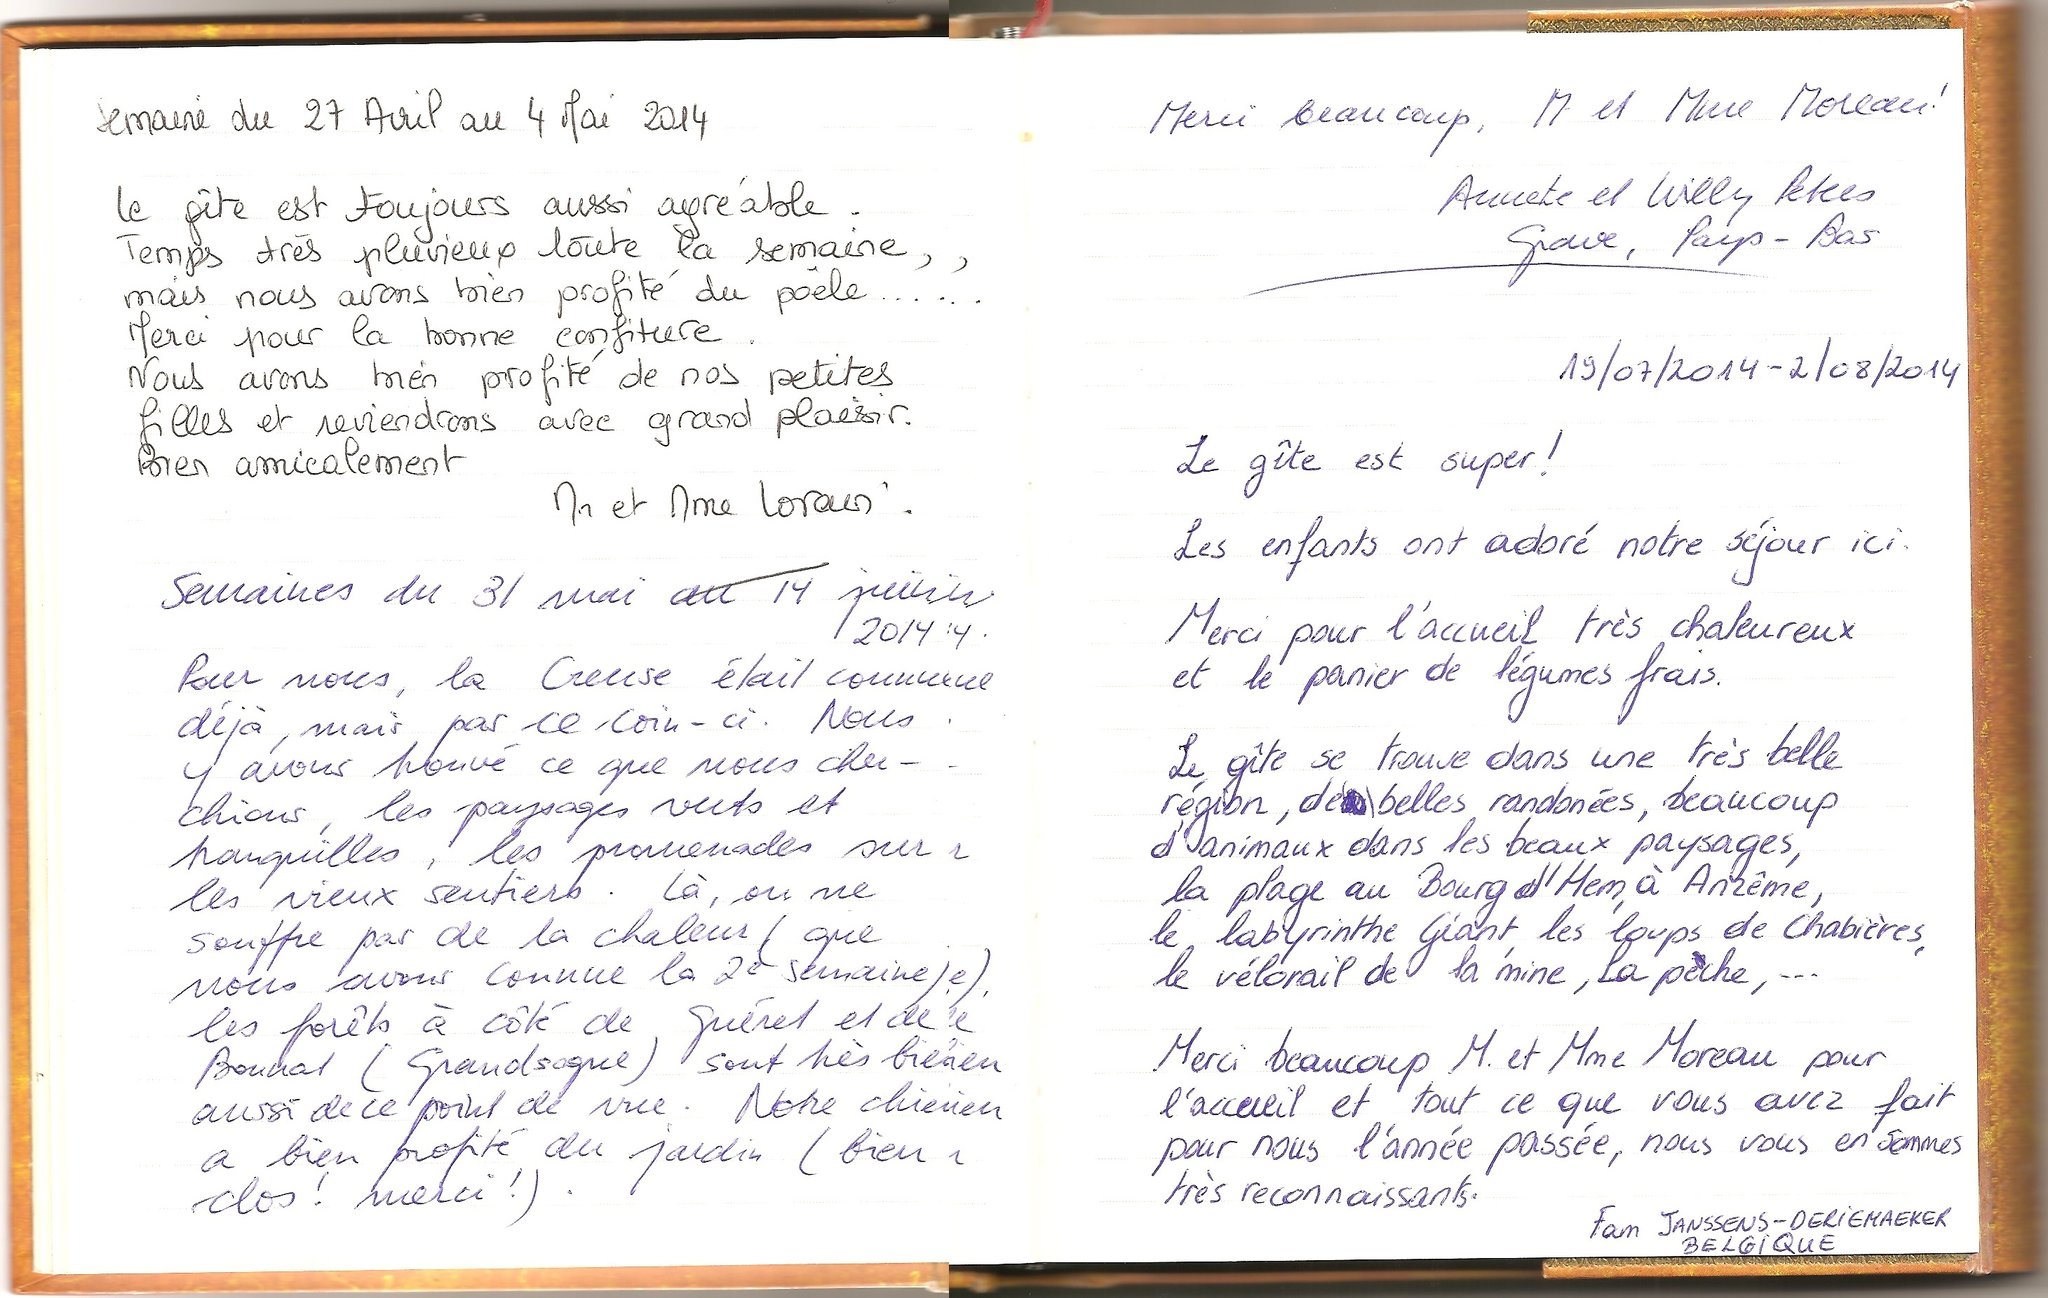 Semaine du 27 Avril au 4 Mai 2014
Le gîte est toujours aussi agréable.
Temps très pluvieux toute la semaine,,
mais nous avons bien profité du poêle......
Merci pour la bonne confiture.
Nous avons bien profité de nos petites
filles et reviendrons avec grand plaisir.
Bien amicalement
Mr et Mme
Semaines du 31 mai au 14 juin
2014
Pour nous, la Creuse était connue
déjà, mais par ce coin-ci. Nous
y avons trouvé ce que nous cher-
chions, les paysages verts et
tranquilles, les promenades sur
les vieux sentiers. Là, on ne
souffre pas de la chaleur (que
nous avons connue la 2e semaine),
les forêts à côté de Guéret et de
Bonnat (Grandsagne) sont très bien
aussi de ce point de vue. Notre chien
a bien profité du jardin (bien
clos! merci!).
Merci beaucoup, M et Mme Moreau!
Annete et Willy
Grave, Pays-Bas
19/07/2014-2/08/2014
Le gîte est super!
Les enfants ont adoré notre séjour ici.
Merci pour l'accueil très chaleureux
et le panier de légumes frais.
Le gîte se trouve dans une très belle
région, de belles randonées, beaucoup
d'animaux dans les beaux paysages,
la plage au Bourg d'Hem, à Anzême,
le labyrinthe Géant, les loups de Chabières,
le vélorail de la mine, la pêche, ...
Merci beaucoup M. et Mme Moreau pour
l'accueil et tout ce que vous avez fait
pour nous l'année passée, nous vous en sommes
très reconnaissants.
Fam JANSSENS-DERIEMAEKER
BELGIQUE